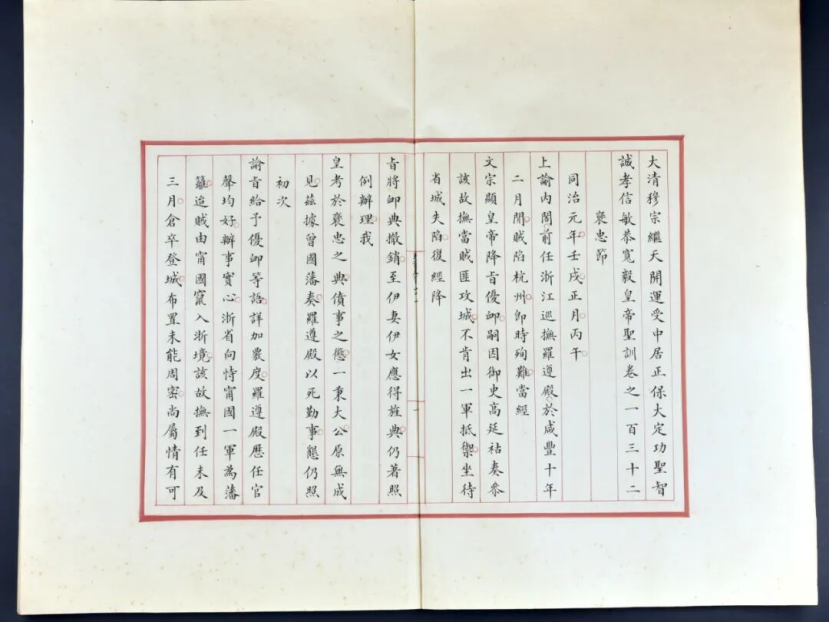 大清穆宗繼天開運受中居正保大定功聖智
誠孝信敏恭寬毅皇帝聖訓卷之一百三十二
褒忠節
同治元年壬戌正月丙午
上諭內閣前任浙江巡撫羅遵殿於咸豐十年
二月間賊陷杭州卽時殉難當經
文宗顯皇帝降旨優卹嗣因御史高延祜奏參
該故撫當賊匪攻城不肯出一軍抵禦坐待
省城失陷復經降
旨將卹典撤銷至伊妻伊女應得旌典仍著照
例辦理我
皇考於褒忠之典僨事之懲一秉大公原無成
見茲據曾國藩奏羅遵殿以死勤事懇仍照
初次
諭旨給予優卹等語詳加覈度羅遵殿歷任官
聲均好辦事實心浙省向恃甯國一軍為藩
籬迨賊由甯國竄入浙境該故撫到任未及
三月倉卒登城布置未能周密尚屬情有可